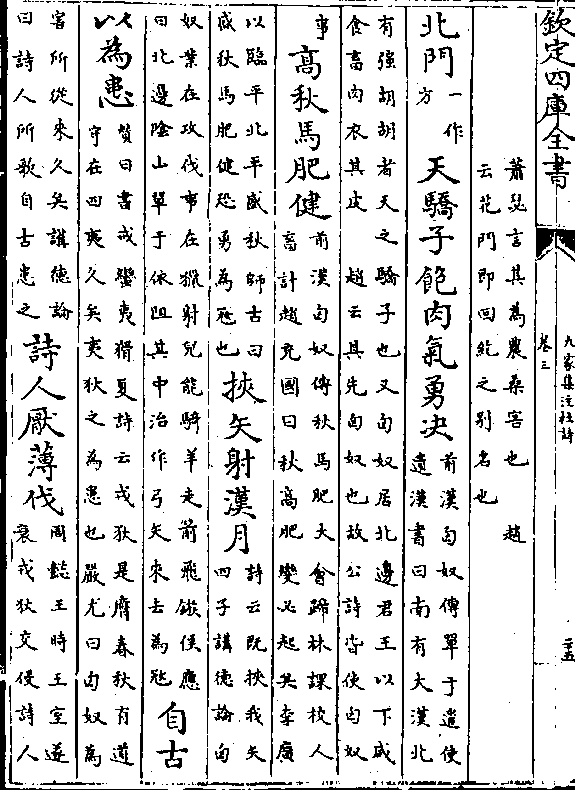 欽定四庫全書
九家集注杜詩
卷三
二十五
蕭瑟言其為農桑害也 趙
云花門即回紇之別名也
北門
一作
方
天驕子飽肉氣勇決
前漢匈奴傳單于遣使
遺漢書曰南有大漢北
有強胡胡者天之驕子也又匈奴居北邊君王以下咸
食畜肉衣其皮 趙云其先匈奴也故公詩皆使匈奴
事
高秋馬肥健
前漢匈奴傳秋馬肥大會蹛林課校人
畜計趙充國曰秋高肥變必起矣李廣
以臨平北平盛秋師古曰
盛秋馬肥健恐勇為冦也
挾矢射漢月
詩云既挾我矢
四子講德論匈
奴業在攻伐事在獵射兒能騎羊走箭飛鏃侯應
曰北邊陰山單于依阻其中治作弓矢來去為冦
自古
以為患
贊曰書戒蠻夷猾夏詩云戎狄是膺春秋有道
守在四夷久矣夷狄之為患也嚴尤曰匈奴為
害所從來久矣講德論
曰詩人所歌自古患之
詩人厭薄伐
周懿王時王室遂
衰戎狄交侵詩人